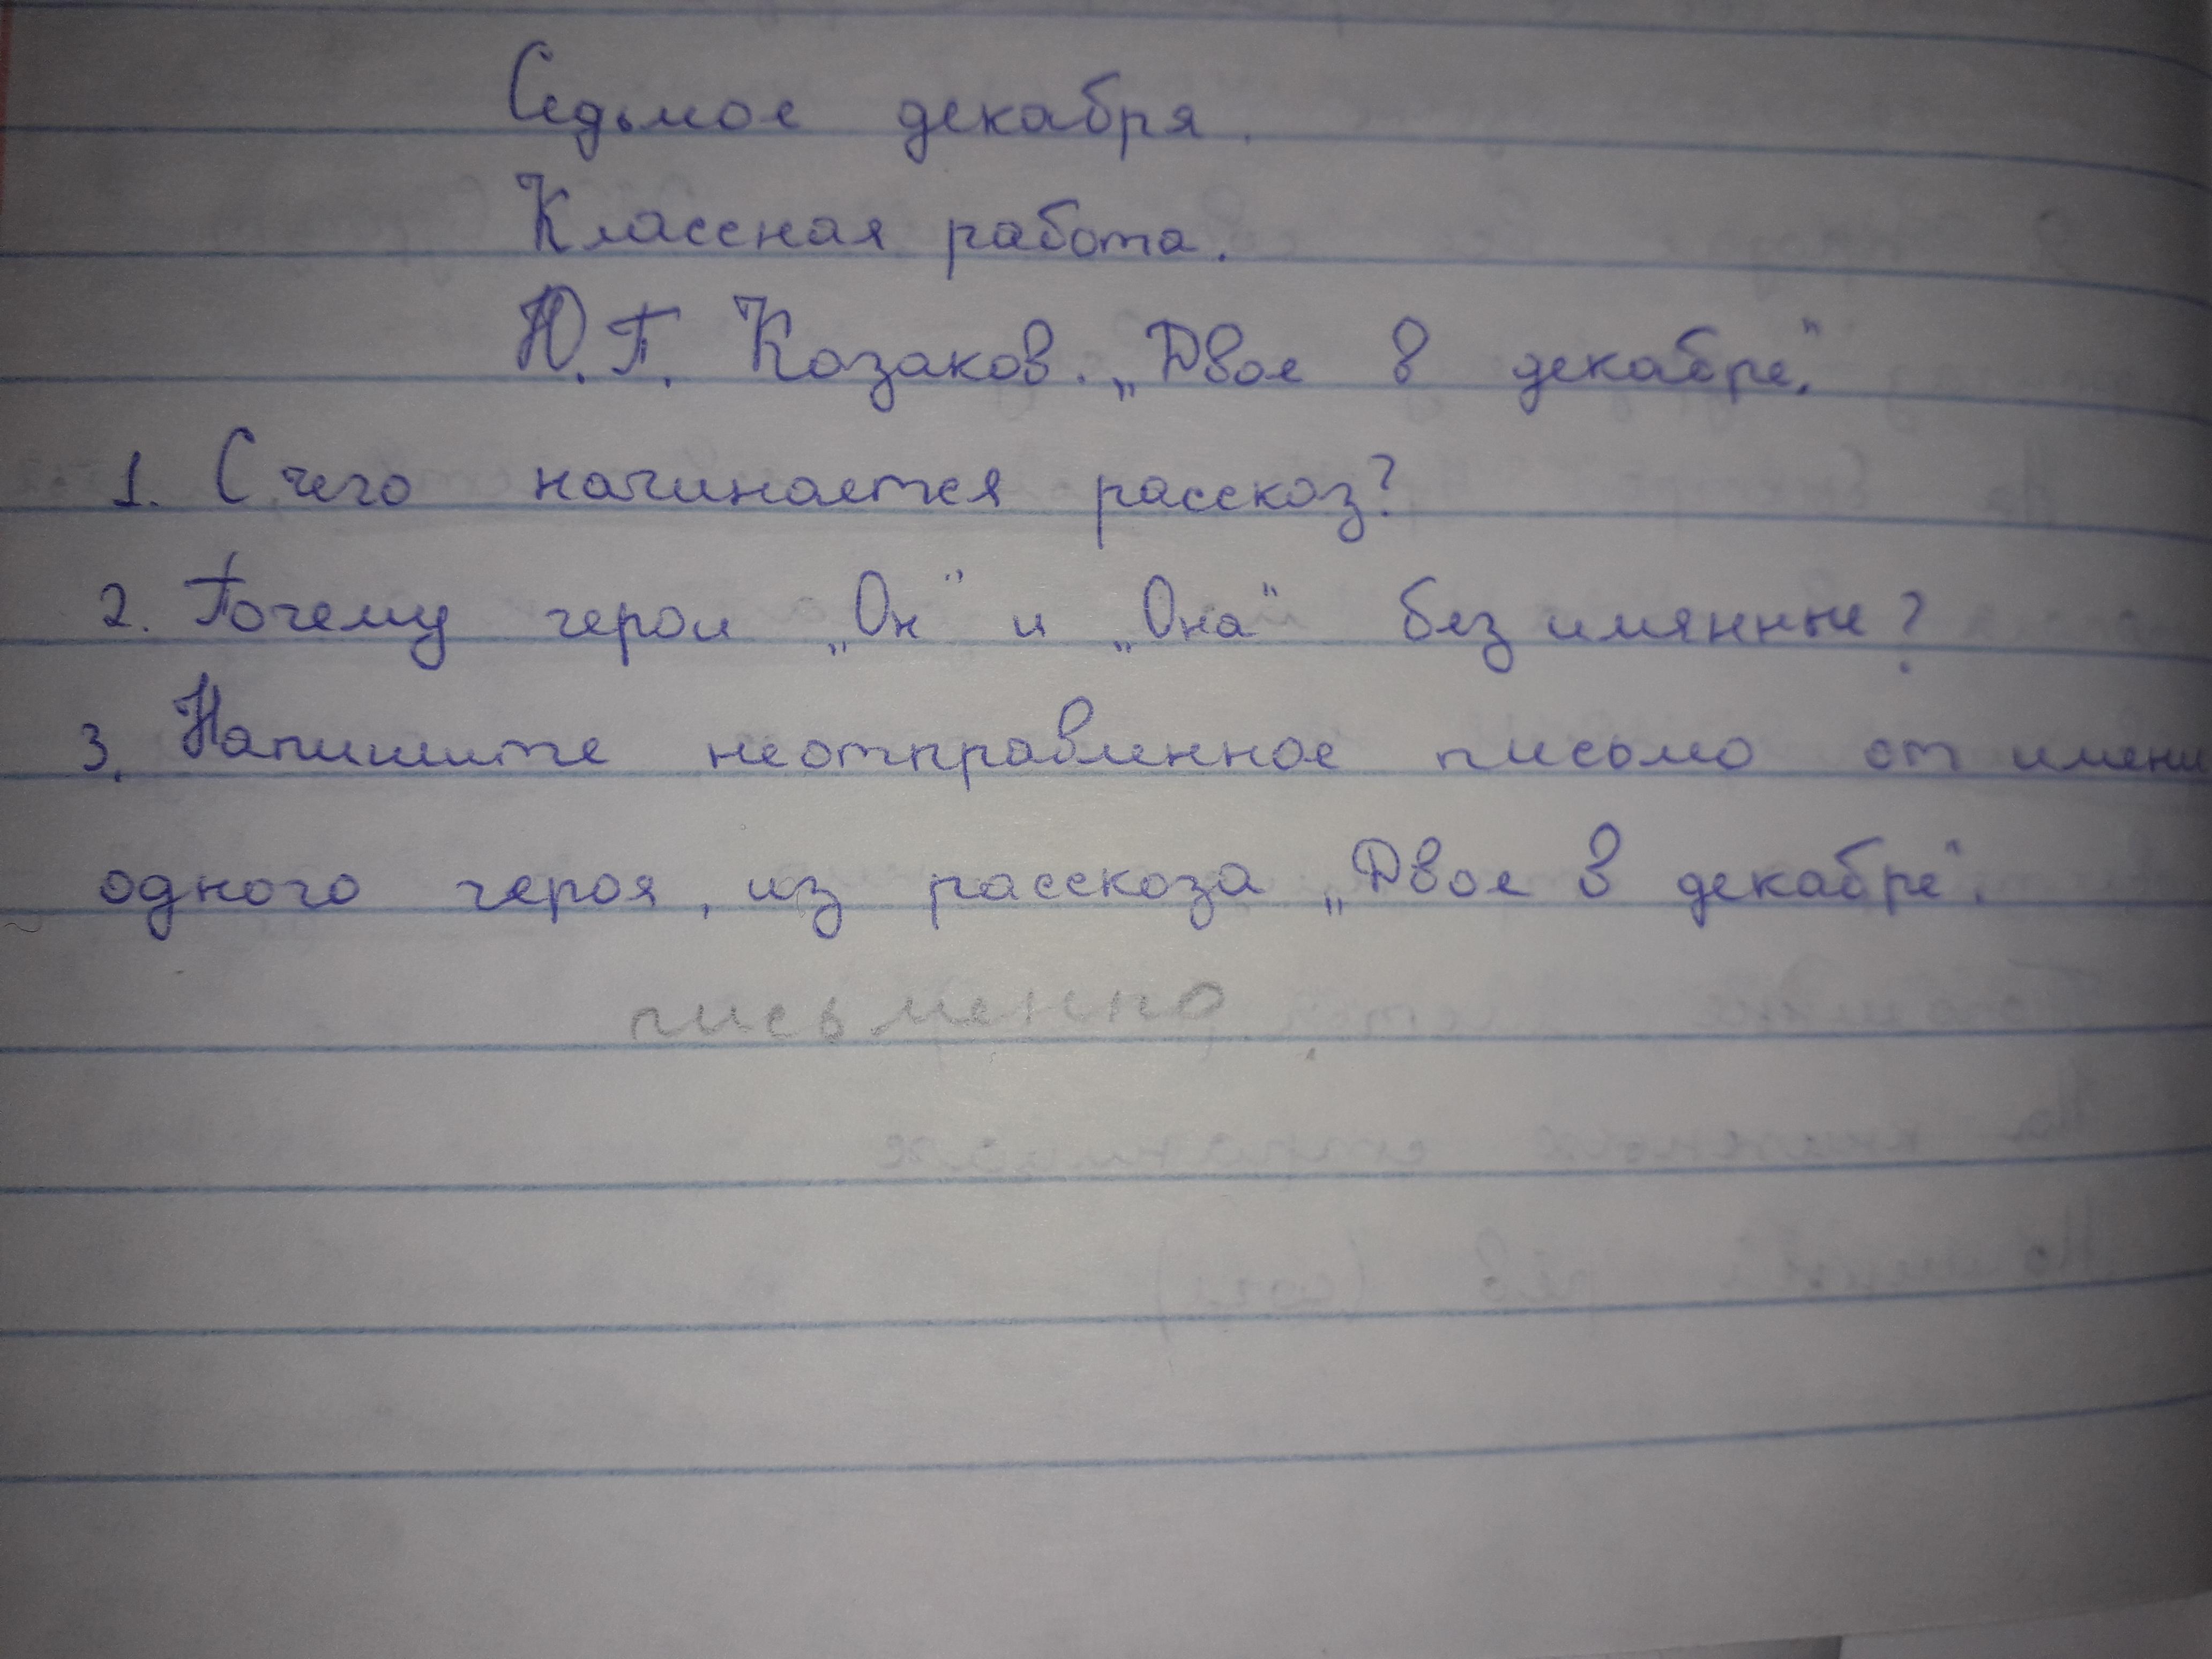 Седьмое декабря.
Классная работа.
Ю.П. Казаков. „Двое в декабре."
1. С чего начинается рассказ?
2. Почему герои „Он" и „Она" безимянные?
3. Напишите неотправленное письмо от имени
одного героя, из рассказа „Двое в декабре".
письменно